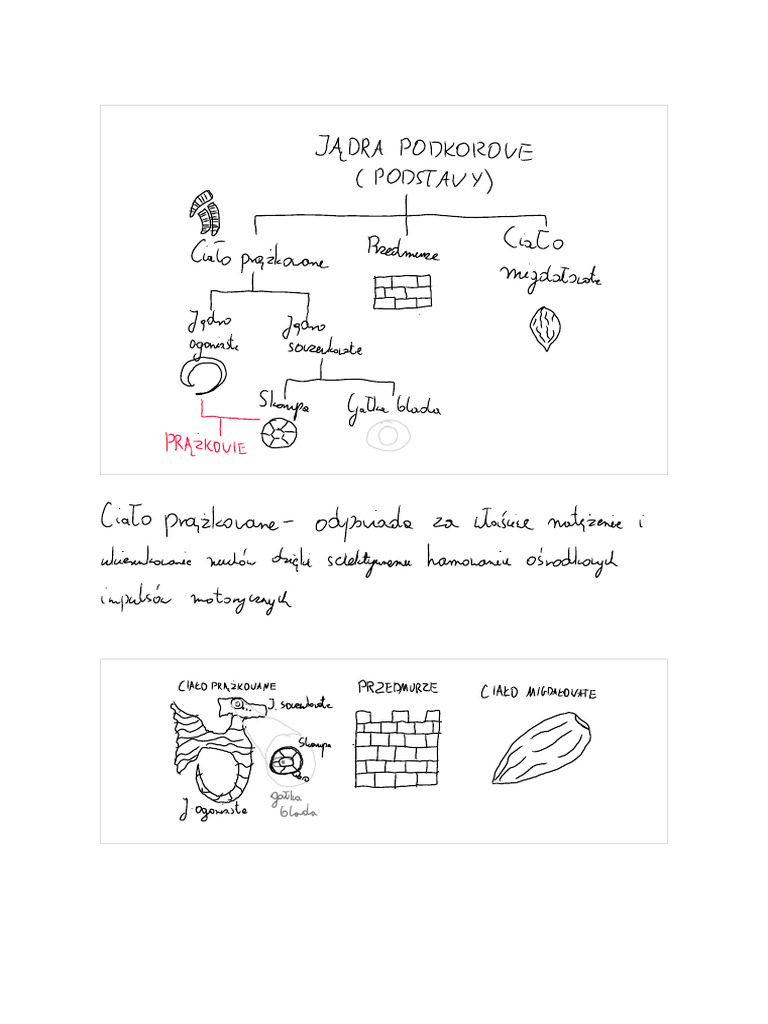 JĄDRA PODKOROVE
(PODSTAVY)
Ciało prążkowane
Przedmurze
Ciało
migdałowate
Jądro
ogoniaste
Jądro
soczewkowate
Skorupa
Gałka blada
PRĄŻKOVIE
Ciało prążkowane - odpowiada za właściwe natężenie i
ukierunkowanie ruchów dzięki selektywnemu hamowaniu ośrodkowych
impulsów motorycznych
CIAŁO PRĄŻKOVANE
J. soczewkowate
Skorupa
gałka
blada
J. ogoniaste
PRZEDMURZE
CIAŁO MIGDAŁOVATE